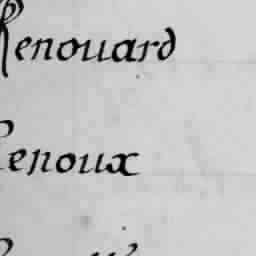 Renouard
Renoux